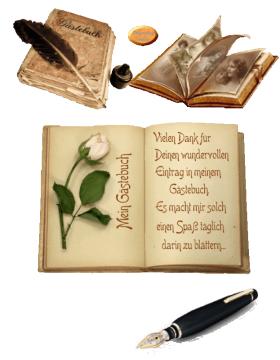 Gästebuch
Mein Gästebuch
Vielen Dank für
Deinen wundervollen
Eintrag in meinem
Gästebuch
Es macht mir solch
einen Spaß täglich
darin zu blättern...